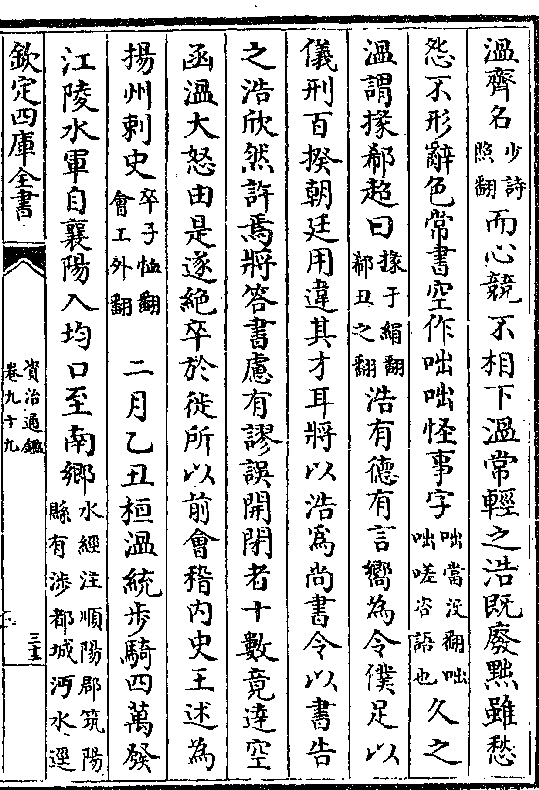 溫齊名少詩照翻而心競不相下溫常輕之浩既廢黜雖愁
怨不形辭色常書空作咄咄怪事字咄當沒翻咄咄嗟咨語也久之
溫謂掾郗超曰掾于絹翻郗丑之翻浩有德有言嚮為令僕足以
儀刑百揆朝廷用違其才耳將以浩為尚書令以書告
之浩欣然許焉將答書慮有謬誤開閉者十數竟達空
函溫大怒由是遂絕卒於徙所以前會稽內史王述為
揚州刺史卒子恤翻會工外翻二月乙丑桓溫統步騎四萬發
江陵水軍自襄陽入均口至南鄉水經注順陽郡筑陽縣有涉都城沔水逕
欽定四庫全書
資治通鑑
卷九十九
三十五